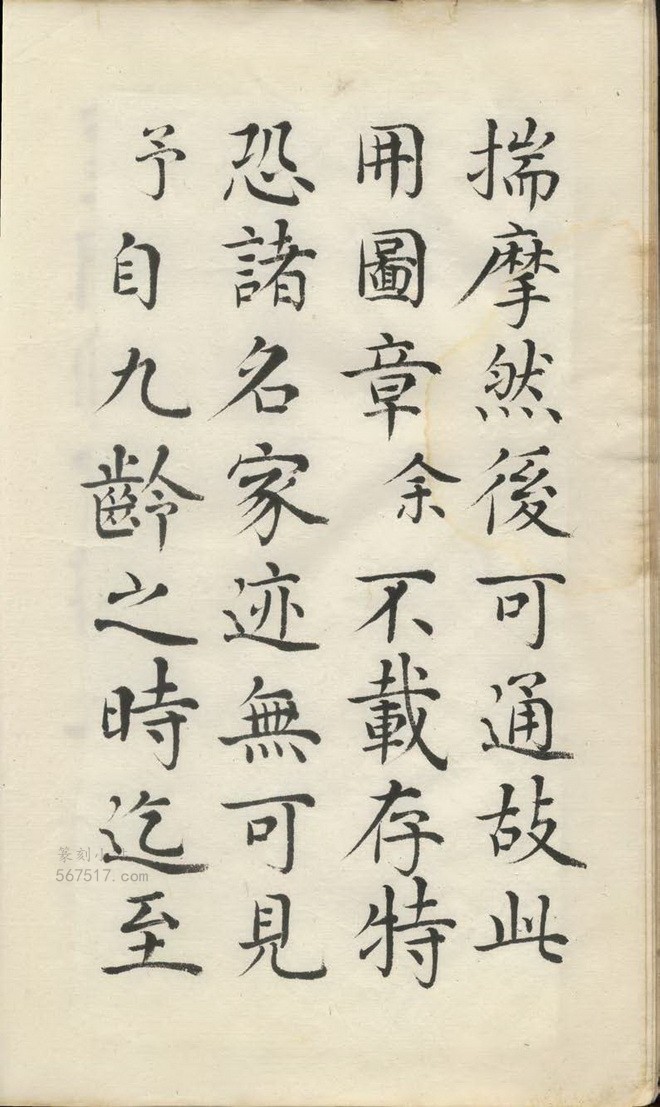 揣摩然後可通故此
用圖章余不載存特
恐諸名家迹無可見
予自九齡之時迄至
篆刻小
567517.com